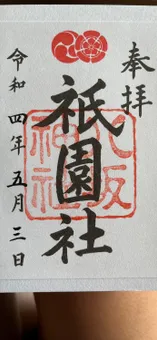 奉拝
祇園社
八坂
神社
令和四年五月三日